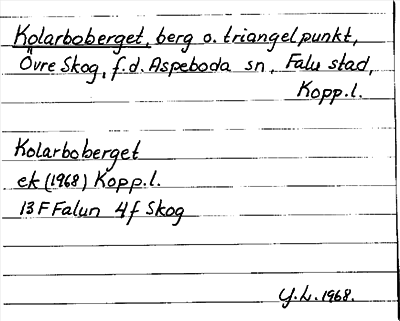 Kolarboberget, berg o. triangelpunkt,
Övre Skog, f.d. Aspeboda sn, Falu stad,
Kopp.l.
Kolarboberget
ek (1968) Kopp.l.
13F Falun 4f Skog
Y.L. 1968.